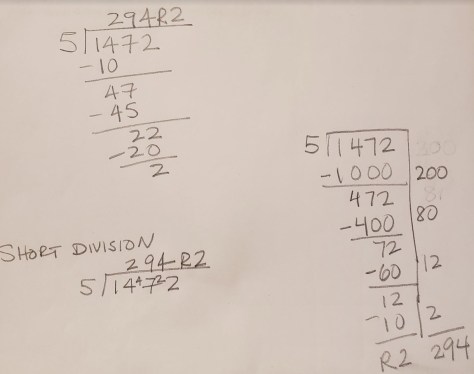 294R2
5 1472
-10
47
-45
22
-20
2
SHORT DIVISION
294R2
5 14⁴7²2
5 1472
-1000 200
472
-400 80
72
-60 12
12
-10 2
R2 294